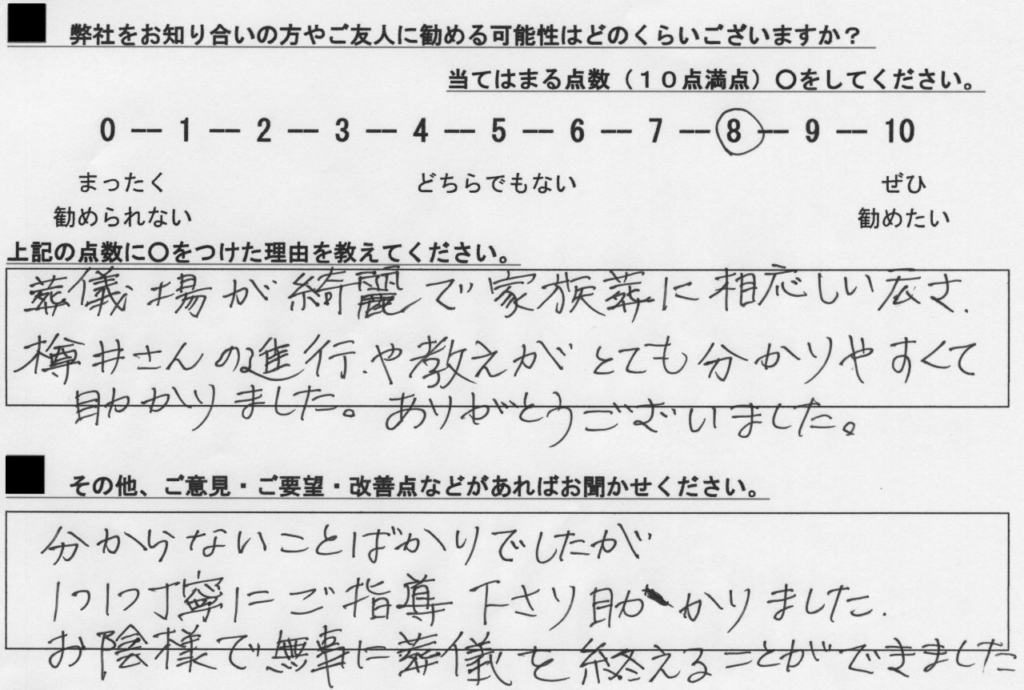 弊社をお知り合いの方やご友人に勧める可能性はどのくらいございますか?
当てはまる点数(10点満点)〇をしてください。
0 ― 1 ― 2 ― 3 ― 4 ― 5 ― 6 ― 7 ― 8 ― 9 ― 10
まったく どちらでもない ぜひ
勧められない 勧めたい
上記の点数に〇をつけた理由を教えてください。
葬儀場が綺麗で家族葬に相応しい広さ.
樽井さんの進行や教えがとても分かりやすくて
助かりました。ありがとうございました。
その他、ご意見・ご要望・改善点などがあればお聞かせください。
分からないことばかりでしたが
1つ1つ丁寧にご指導下さり助かりました.
お陰様で無事に葬儀を終えることができました